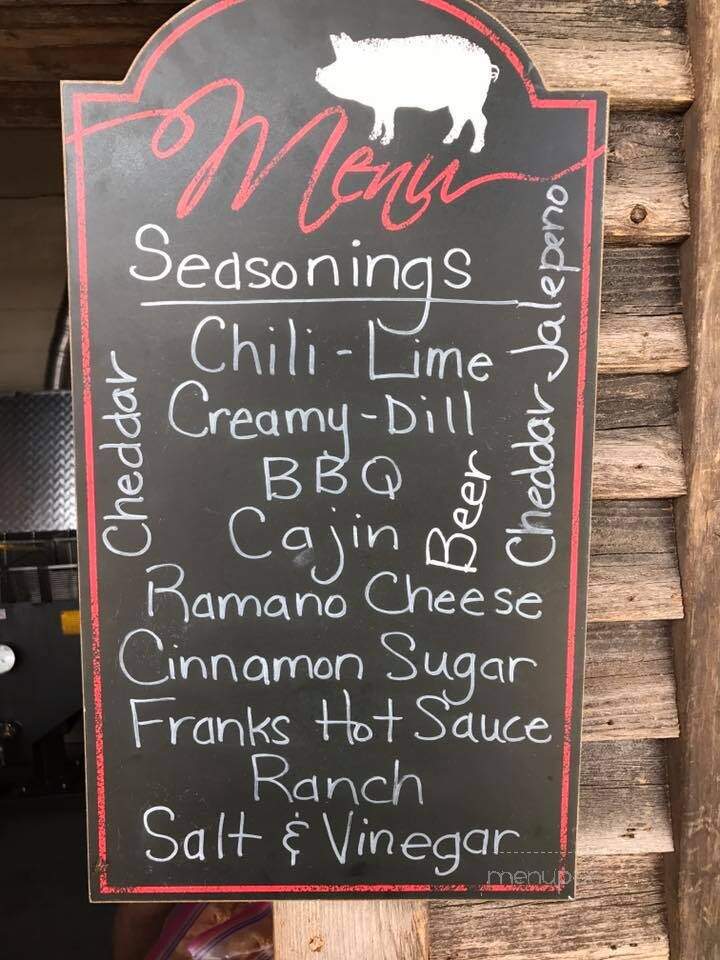 Menu
Seasonings
Chili-Lime
Creamy-Dill
BBQ
Cajin
Ramano Cheese
Cinnamon Sugar
Franks Hot Sauce
Ranch
Salt & Vinegar
Cheddar
Beer
Cheddar Jalepeno
menup